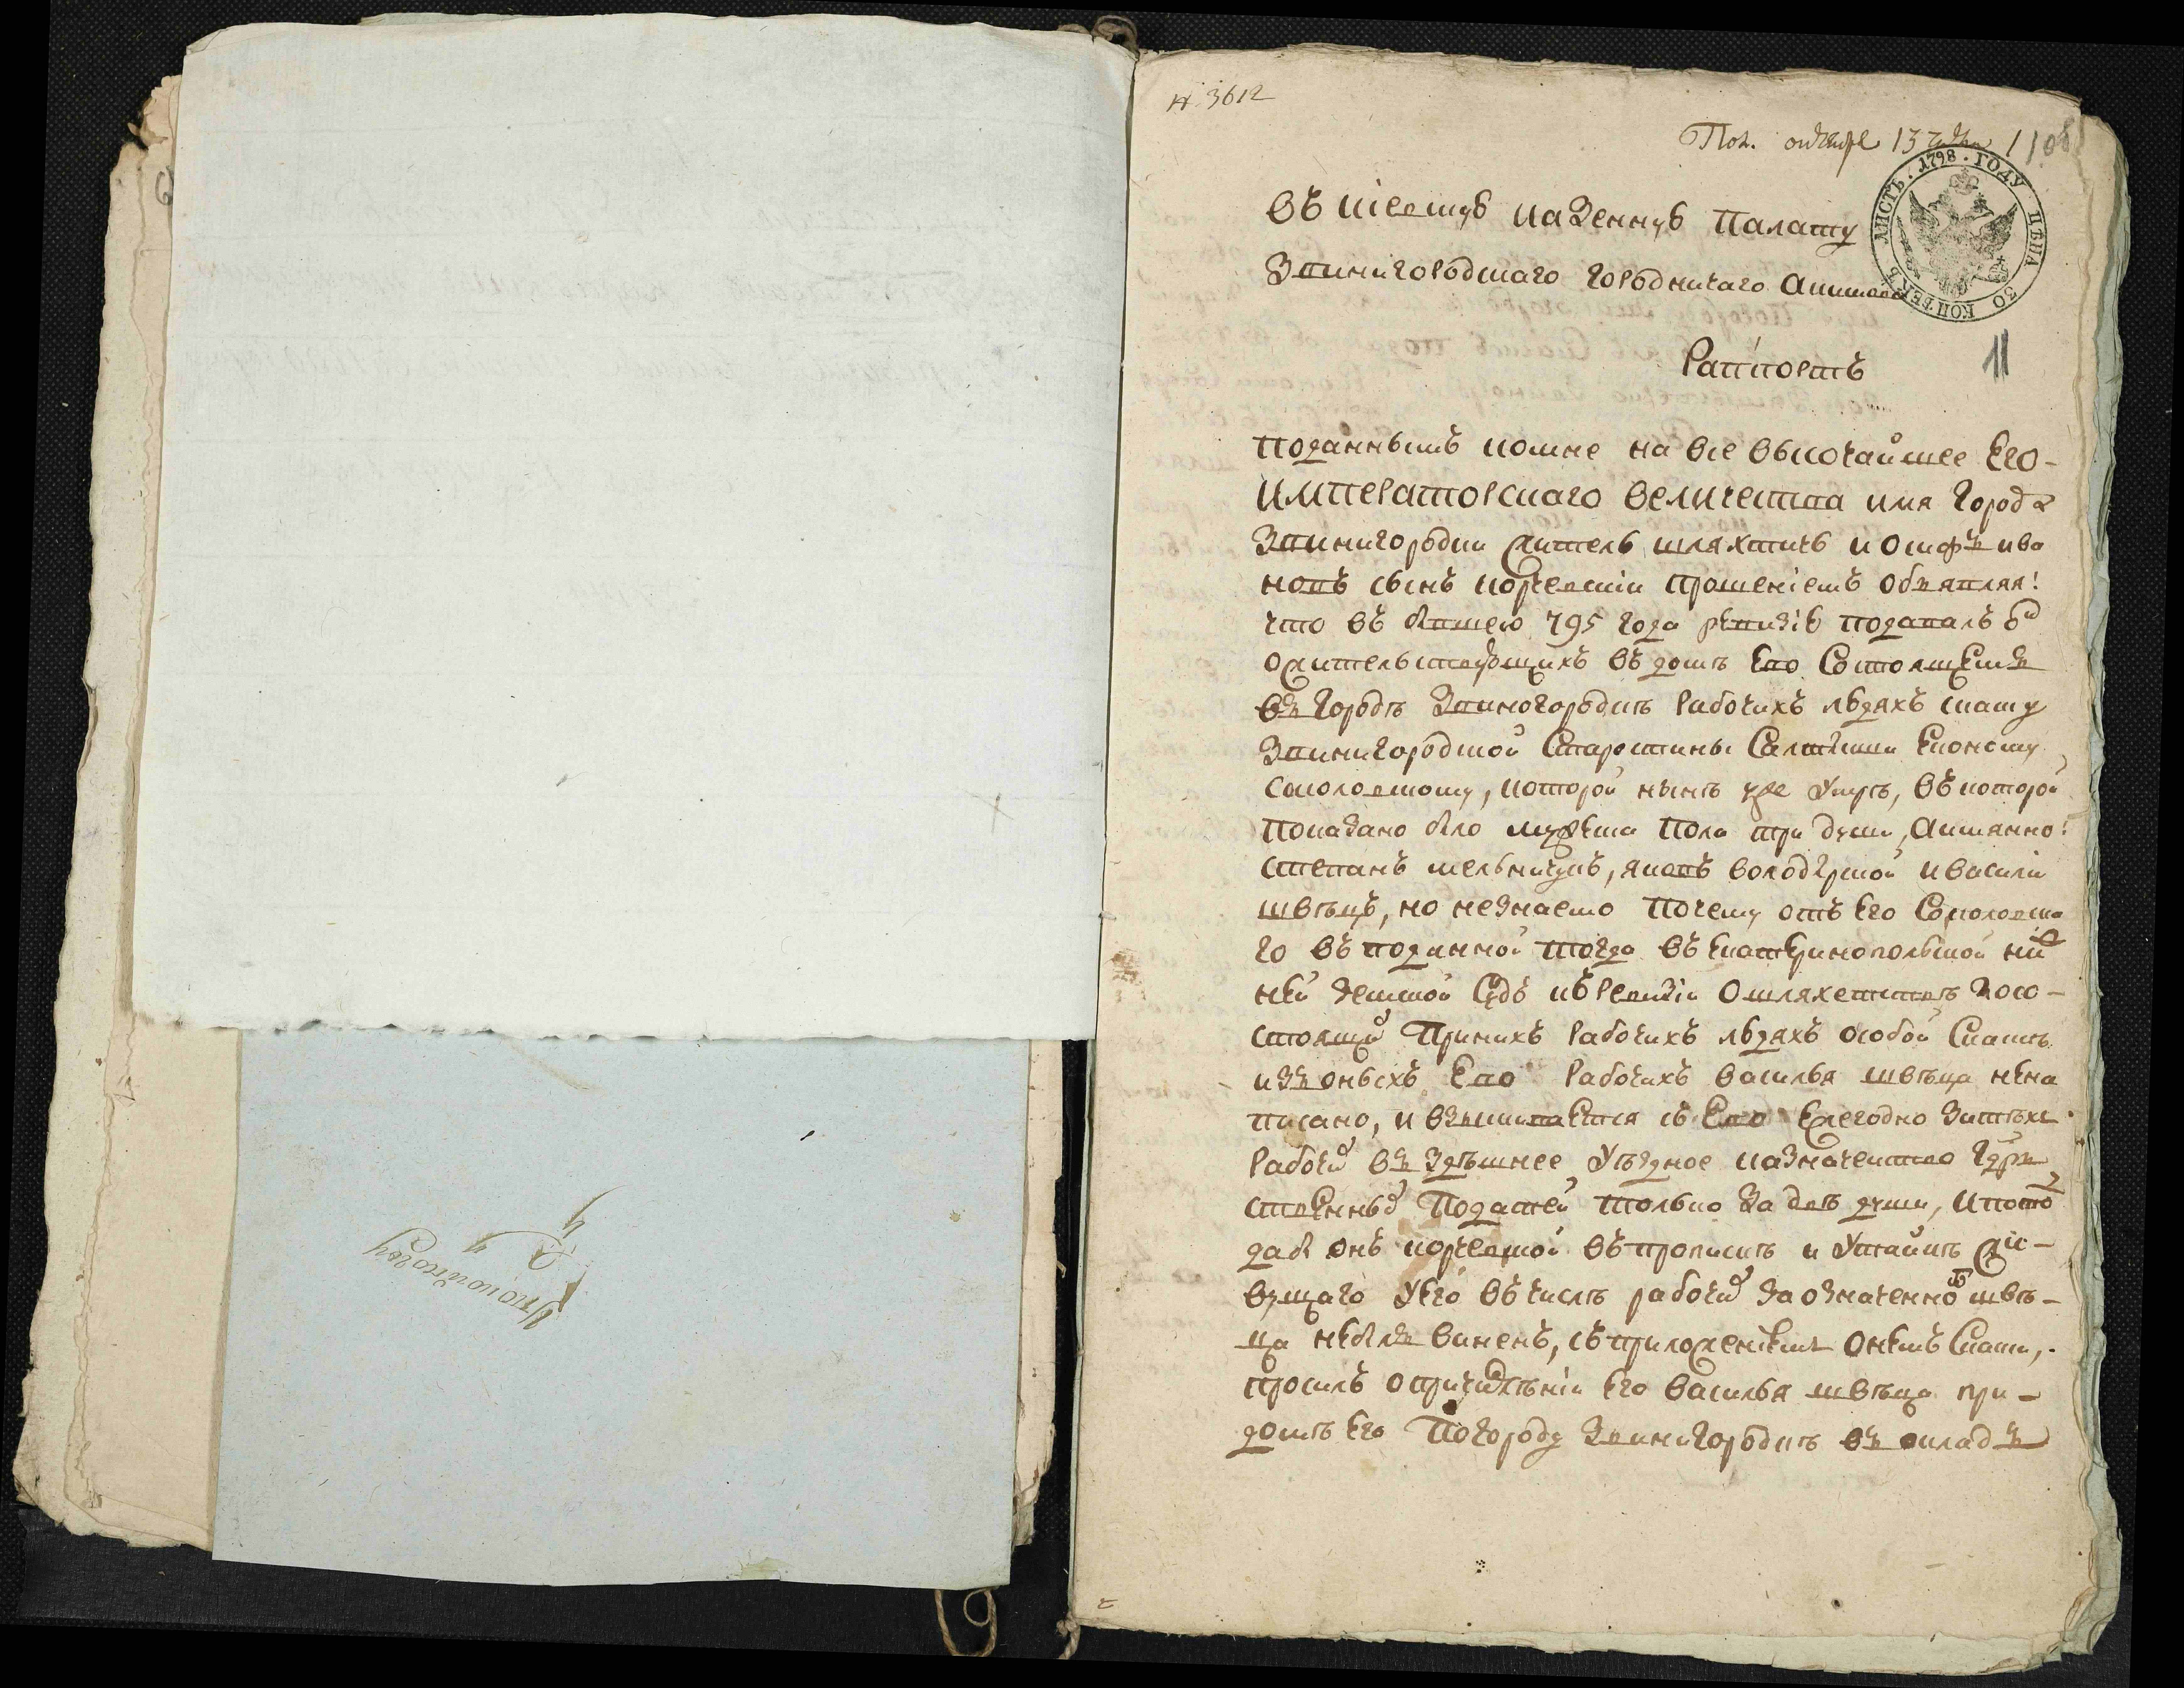 № 3612
Пол. октября 13 1798
ЛИСТЪ. 1798. ГОДУ ЦѢНА 30 КОПѢЕКЪ
Въ кіевскую казенную палату
Звинигородскаго городничаго
Раппортъ
11
поданнымъ комне на все высочайшее Его
императорскаго величества имя города
Звинигородки житель шляхтичь иосифъ ива
новъ сынъ корчевскій прошеніемъ объявляя:
что въ бывшею 795 года ревизію подавалъ
о жительствующихъ въ доме Ево Состоящемъ
въ городѣ Звиногородкѣ рабочихъ людяхъ скаску
Звинигородской Старостины Економу
Соколовскому, которой нынѣ уже умре, въ которой
показано было мужеска пола три души, аимянно:
степанъ мельничукъ, яковъ володарской и василій
швѣцъ, но незнаемо почему отъ Его Соколовска
го въ поданной тогда въ екатеринопольской ниж
ней земской Судъ къ ревизіи о шляхетствѣ
стоящихъ при нихъ рабочихъ людяхъ особой Скаскѣ
изъ оныхъ Ево рабочихъ василья швѣца нена
писано, и взыскивается съ Ево Ежегодно за тѣхъ
рабочихъ въ здѣшнее уѣздное казначейство
ственныхъ податей только за двѣ души, и чтобъ
дабы онъ корчевской въ прописке и утайкѣ жи
вущаго у Его въ числѣ рабочихъ за означенного швѣ
ца небылъ виненъ, съ приложеніемъ онкимъ Скаски,
просилъ о причисленіи Его василья швѣца при
домѣ Его по городу Звинигородкѣ въ окладъ